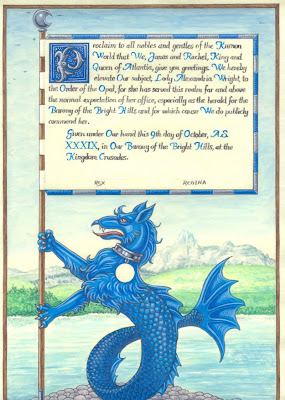 Proclaim to all nobles and gentles of the Known
World that We, James and Rachel, King and
Queen of Atlantia, give you greetings. We hereby
elevate Our subject, Lady Alexandria Wright, to
the Order of the Opal, for she has served this realm far and above
the normal expectation of her office, especially as the herald for the
Barony of the Bright Hills and for which cause We do publicly
commend her.
Given under Our hand this 9th day of October, A.S.
XXXIX, in Our Barony of the Bright Hills, at the
Kingdom Crusades.
REX REGINA